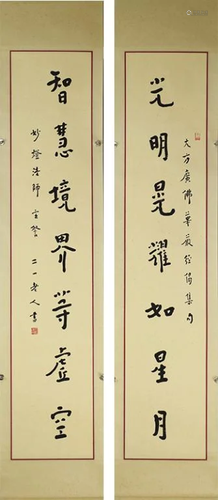 大方廣佛華嚴經偈集句
光明晃耀如星月
智慧境界等虛空
妙燈法師 二一老人書